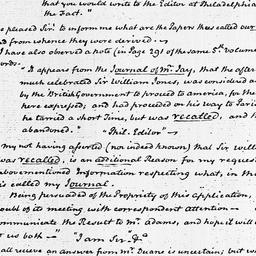 that you would write to the Editor at Philadelphia
the Fact."
be pleased Sir! to inform me what are the Papers thus called our
and from whence they were derived. —
I have also observed a note (in Page 29) of the same 5th Volume
words.
"It appears from the Journal of Mr. Jay, that the after
much celebrated Sir William Jones, was considered as
by the British Government to proceed to america, for the
here expressed; and had proceeded on his way to Paris
he tarried a short Time, but was recalled, and th
abandoned." ~ Phil. Editor" —
my not having asserted (nor indeed known) that Sir Will
was recalled, is an additional Reason for my request
abovementioned Information respecting what, in the
is called my Journal.
Being persuaded of the Propriety of this Application,
doubt of its meeting with correspondent attention —
communicate the Result to Mr. adams, and hope it will
to us both —" I am Sir &c
shall recieve an answer from Mr. Duane is uncertain; but we